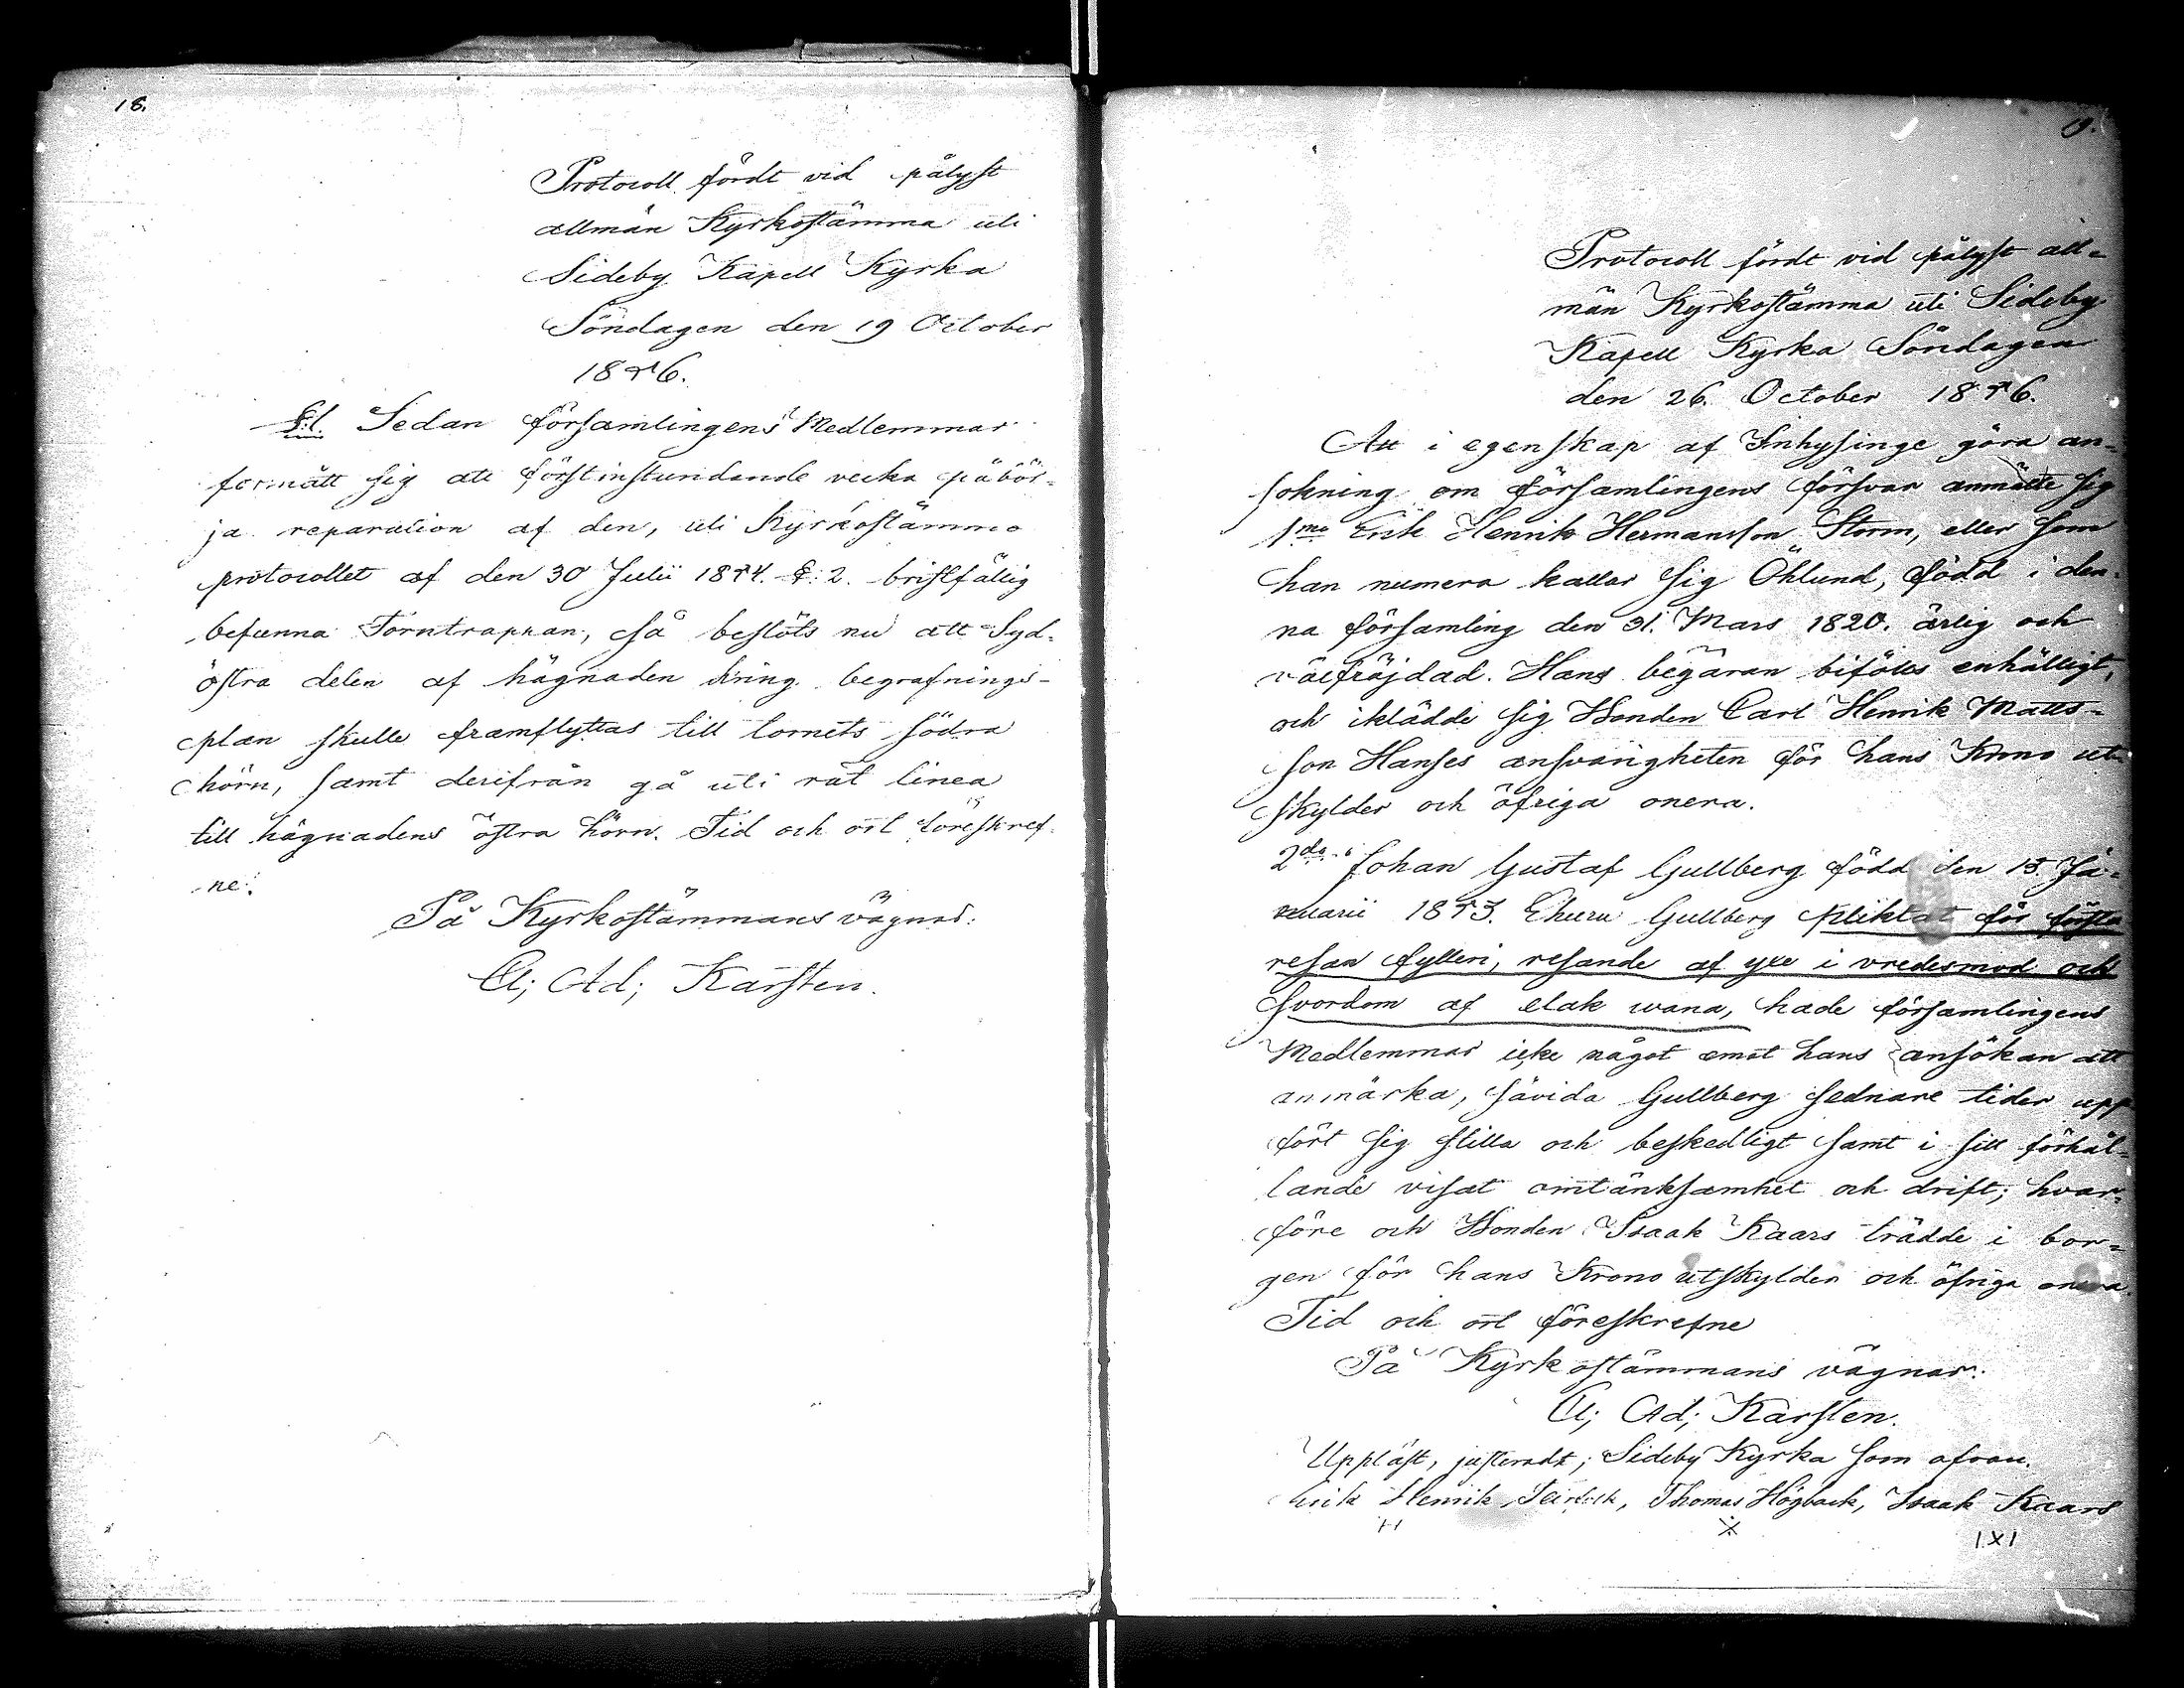 18.
Protocoll fördt vid pålyst
allmän Kyrkostämma uti
Sideby Kapell Kyrka
Söndagen den 19 October
1846.
§:1. Sedan församlingens Medlemmar
förmått sig att förstinstundande vecka påbör-
ja reparation af den, uti Kyrkostämmo
protocollet af den 30 Julii 1844. §: 2. bristfällig
befunna Torntrappan, så beslöts nu att Syd-
östra delen af hägnaden kring begrafnings-
plan skulle framflyttas till tornets södra
hörn, samt derifrån gå uti rät linea
till hägnadens östra hörn. Tid och ort föreskref-
ne.
På Kyrkostämmans vägnar:
Cl; Ad; Karsten.
19.
Protocoll fördt vid pålyst all-
män Kyrkostämma uti Sideby
Kapell Kyrka Söndagen
den 26. October 1846.
Att i egenskap af Inhysinge göra an-
sökning om församlingens försvar anmälte sig
1mo Erik Henrik Hermansson Storm, eller som
han numera kallar sig Öhlund, född i den-
na församling den 31. Mars 1820. ärlig och
välfräjdad. Hans begäran bifölls enhälligt,
och iklädde sig Bonden Carl Henrik Matts-
son Hanses ansvarigheten för hans Krono ut-
skylder och öfriga onera.
2do Johan Gustaf Gullberg född den 15. Ja-
nuarii 1813. Ehuru Gullberg pliktat för första
resan fylleri, resande af yxe i vredesmod och
svordom af elak wana, hade församlingens
Medlemmar icke något emot hans ansökan att
anmärka, såvida Gullberg sednare tider upp
fört sig stilla och beskedligt samt i sitt förhål-
lande visat omtänksamhet och drift; hvar-
före och Bonden Isaak Kaars trädde i bor-
gen för hans Krono utskylder och öfriga onera.
Tid och ort föreskrefne
På Kyrkostämmans vägnar:
Cl; Ad; Karsten.
Uppläst, justeradt; Sideby Kyrka som ofvan.
Erik Henrik Thomas Högback, Isaak Kaars